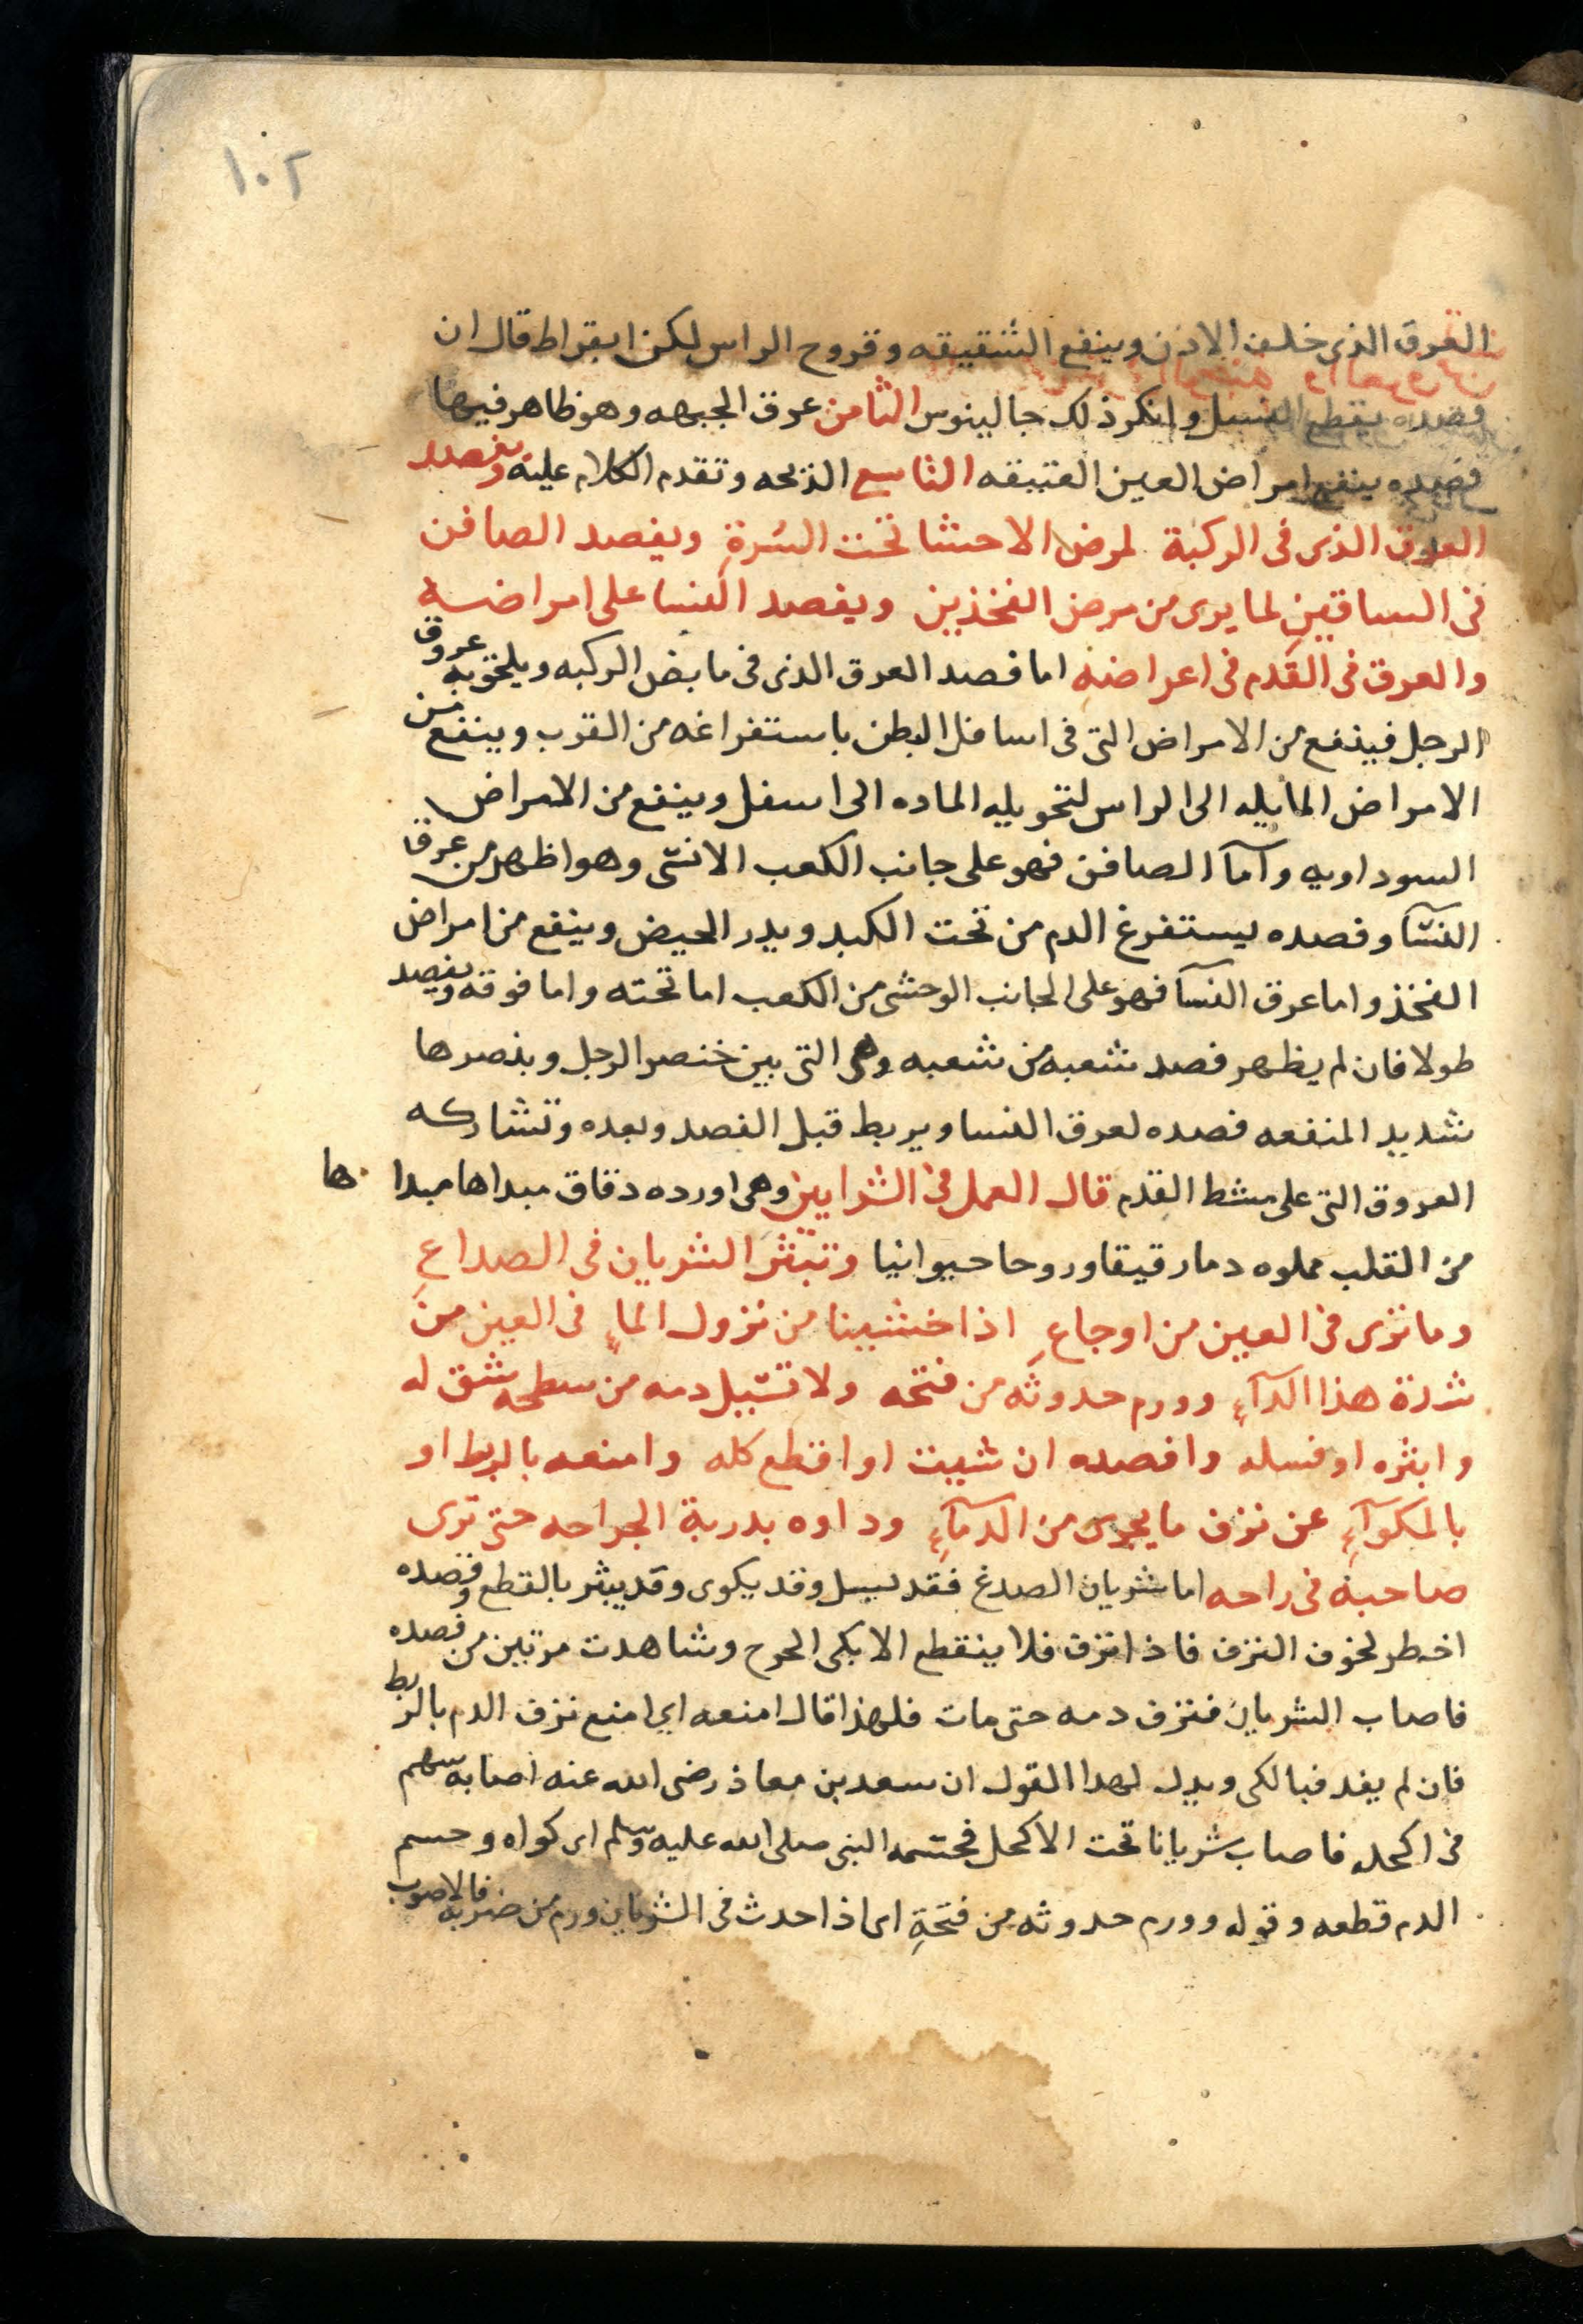 ١٠٢
العرق الذى خلف الاذن وينفع الشقيقه وقروح الراس لكن ابقراط قال ان
فصده يقطع النسل وانكر ذلك جالينوس الثامن عرق الجبهه وهو ظاهر فيها
فصده ينفع امراض العين العتيقه التاسع الذبحه وتقدم الكلام عليه ويفصد
العرق الذى فى الركبة لمرض الاحشا تحت السُرةِ ويفصد الصافن
فى الساقين لما يرى من مرض الفخذين ويفصد النسا على امراضه
والعرق فى القدم فى اعراضهِ اما فصد العرق الذى فى مابض الركبه ويلحق به عروق
الرجل فينفع من الامراض التى فى اسافل البطن باستفراغه من القرب وينفع من
الامراض المايله الى الراس لتحويله الماده الى اسفل وينفع من الامراض
السوداويه وآما الصافن فهو على جانب الكعب الانسى وهو اظهر من عرق
النسآ وفصده ليستفرغ الدم من تحت الكبد ويدر الحيض وينفع من امراض
الفخذ واما عرق النسآ فهو على الجانب الوحشى من الكعب اما تحته واما فوقه ويفصد
طولا فان لم يظهر فصد شعبه من شعبه وهى التى بين خنصر الرجل وبنصرها
شديد المنفعه فصده لعرق النسا ويربط قبل الفصد وبعده وتشاركه
العروق التى على مشط القدم قال العمل فى الشرايين وهى اورده دقاق مبداها مبدا ها
من القلب مملوه دما رقيقا وروحا حيوانيا وتبتر الشريان فى الصداعِ
وما ترى فى العين من اوجاعِ اذا خشينا من نزول الماءِ فى العين من
شدة هذا الدآءِ وورم حدوثه من فتحه ولا تسيل دمه من سطحه شق له
وابتره او فسله وافصده ان شيت او اقطع كله وامنعه بالربط او
بالمكوآءِ عن نزف ما يجرى من الدمآءِ وداوه بدربة الجراحه حتى ترى
صاحبه فى راحه اما شريان الصدغ فقد يسل وقد يكوى وقد يبتر بالقطع وفصده
اخطر لخوف النزف فاذا نزف فلا ينقطع الا بكى الجرح وشاهدت مرتين من فصده
فاصاب الشريان فنزف دمه حتى مات فلهذا قال امنعه اى امنع نزف الدم بالربط
فان لم يفد فبالكى ويدل لهدا القول ان سعد بن معاذ رضى الله عنه اصابه سهم
فى اكحله فاصاب شريانا تحت الاكحل فحسمه النبى صلى الله عليه وسلم اى كواه وحسم
الدم قطعه وقوله وورم حدوثه من فتحةِ اى اذا حدث فى الشريان ورم من ضربه فالاصوب